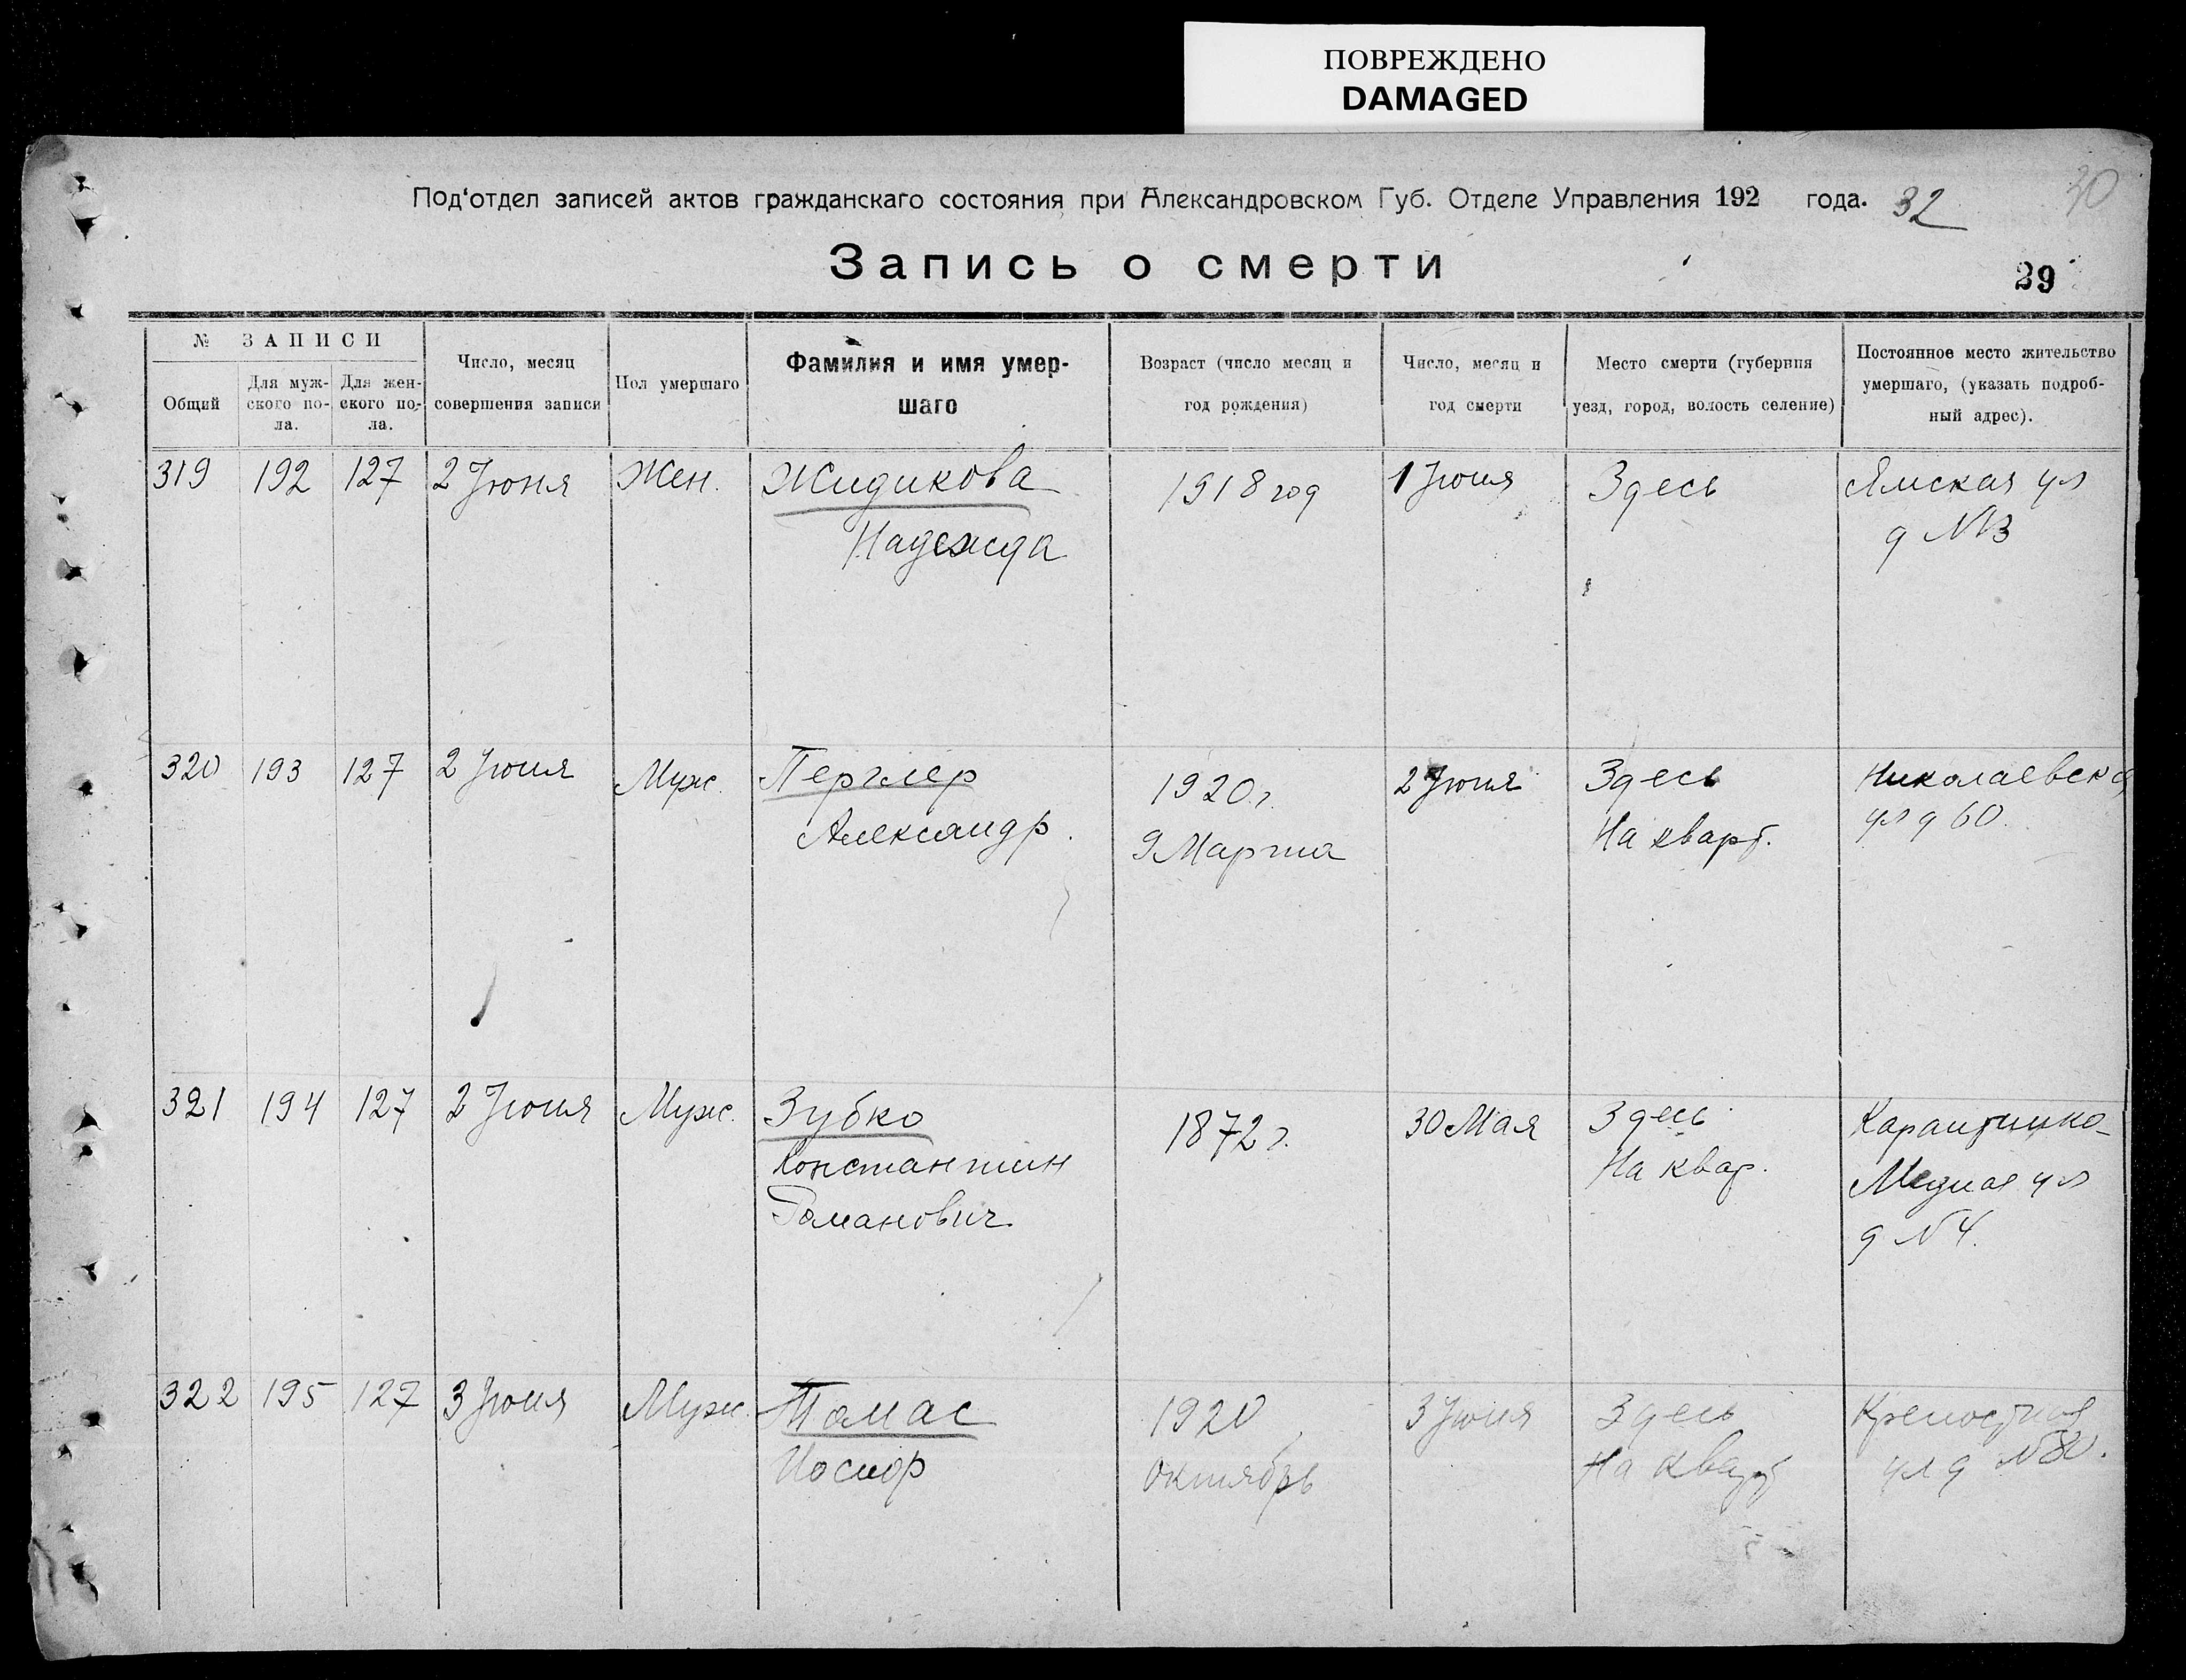 ПОВРЕЖДЕНО
DAMAGED
Под'отдел записей актов гражданскаго состояния при Александровском Губ. Отделе Управления 192 года. 32
30
Запись о смерти
29
№ ЗАПИСИ
Общий
Для муж-
ского по-
ла.
Для жен-
ского по-
ла.
Число, месяц
совершения записи
Пол умершаго
Фамилия и имя умер-
шаго
Возраст (число месяц и
год рождения)
Число, месяц и
год смерти
Место смерти (губерния
уезд, город, волость селение)
Постоянное место жительство
умершаго, (указать подроб-
ный адрес).
319 192 127 2 Июня Жен. Жидикова 1918 год 1 Июня Здесь Ямская ул
Надежда д №3
320 193 127 2 Июня Муж. Перглер 1920 г. 2 Июня Здесь Николаевская
Александр. 9 Марта На кварт. ул д 60.
321 194 127 2 Июня Муж. Зубко 1872 г. 30 Мая Здесь Карантинно-
Константин На квар. Медная ул
Романович д №4.
322 195 127 3 Июня Муж. Томас 1920 3 Июня Здесь Крепостная
Иосиф октябрь На кварт ул д